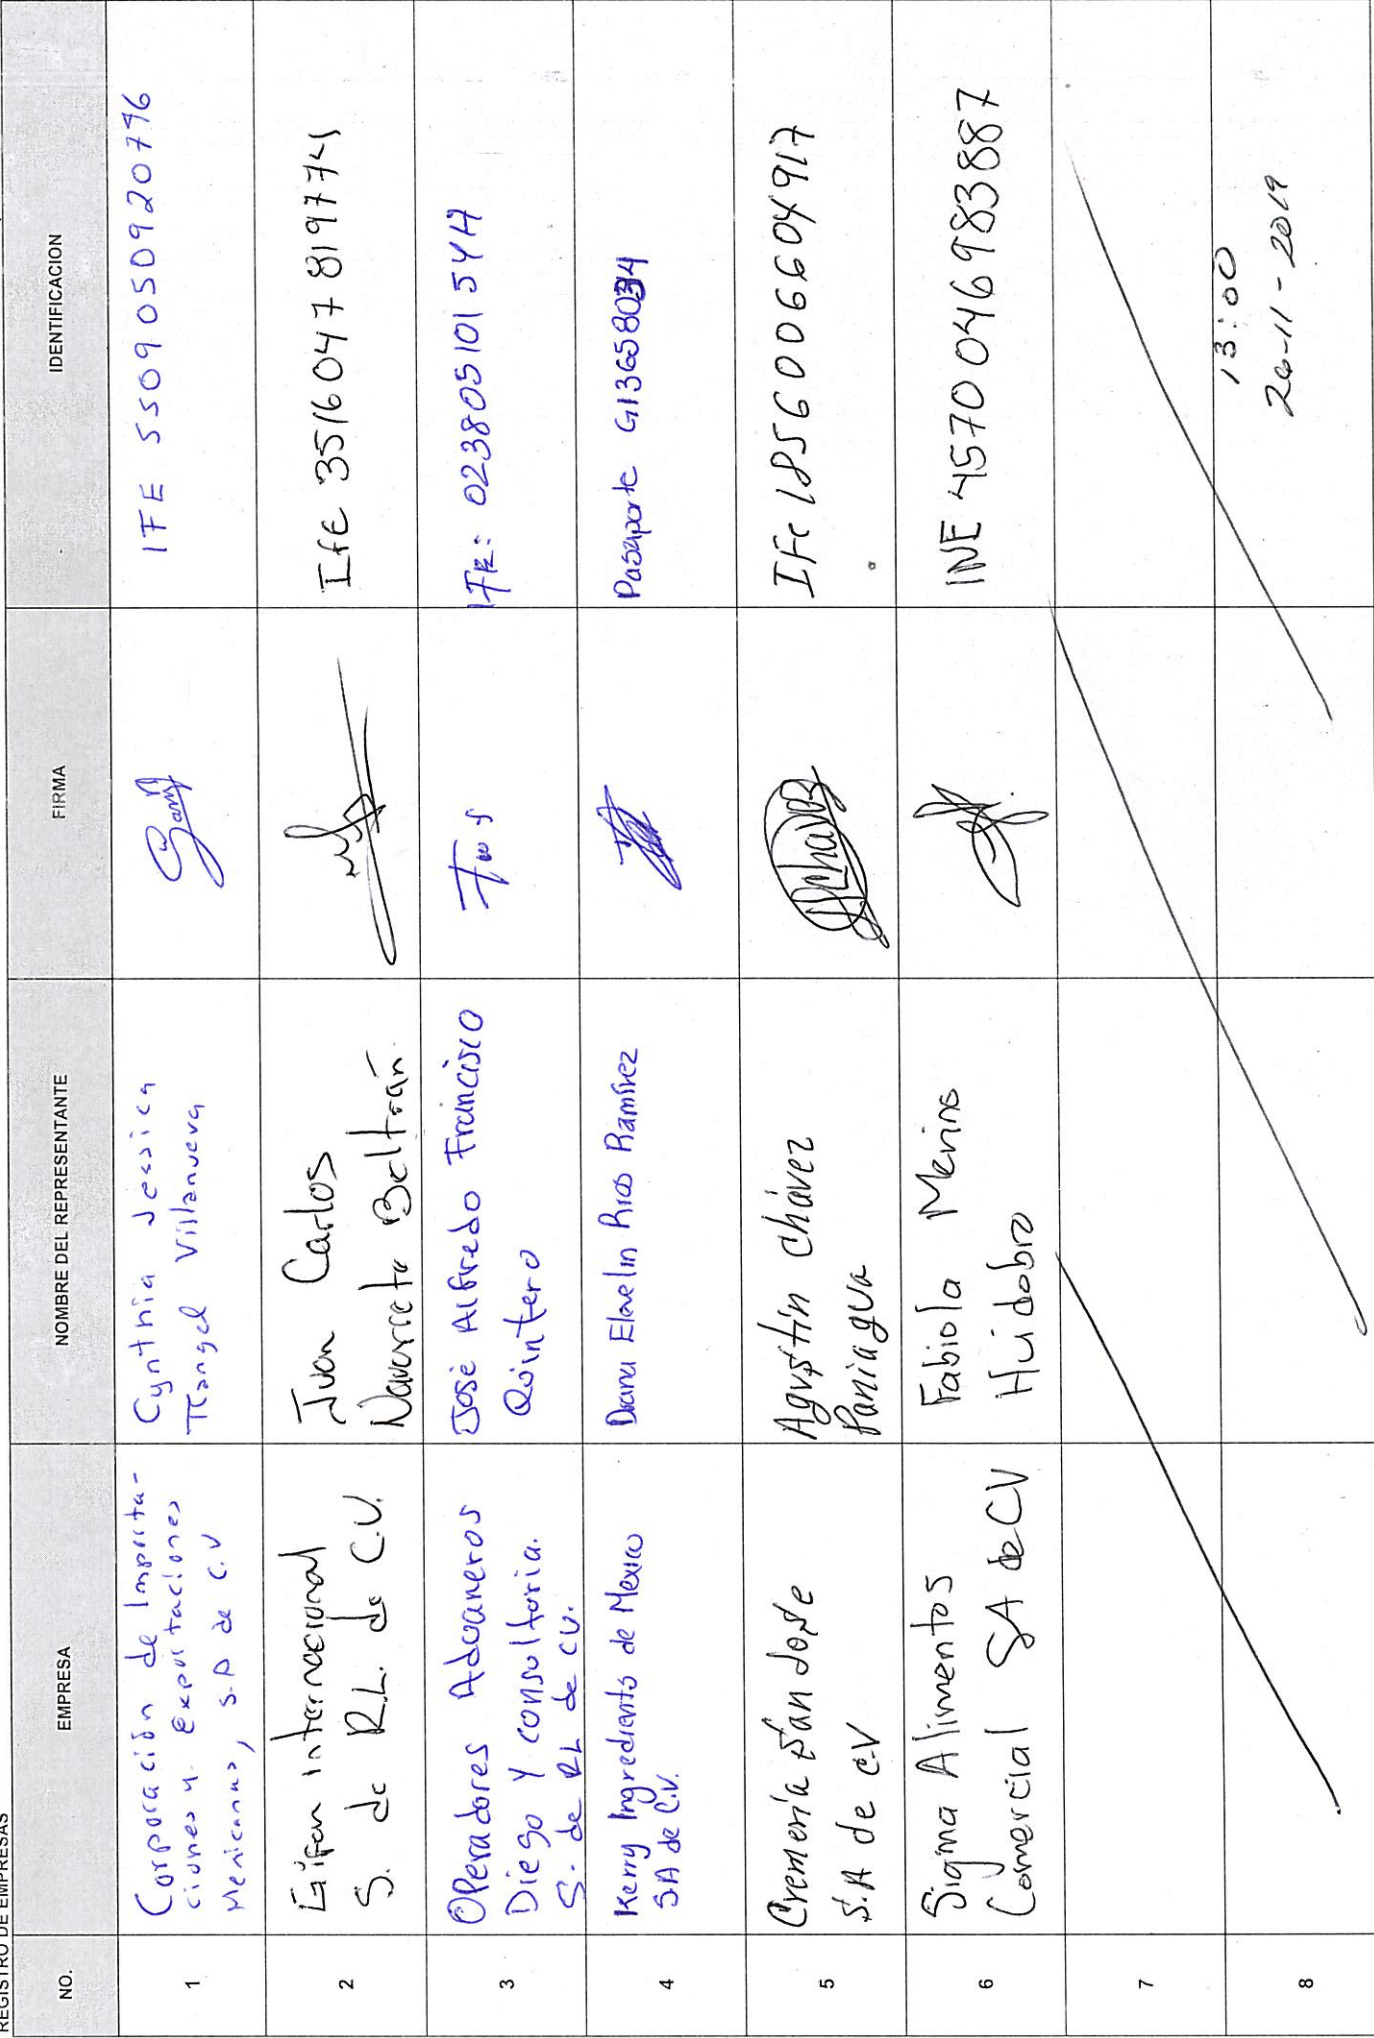 REGISTRO DE EMPRESAS
NO.
EMPRESA
NOMBRE DEL REPRESENTANTE
FIRMA
IDENTIFICACION
1
Corporación de Importa-
ciones y Exportaciones
Mexicanas, S.A de C.V
Cynthia Jessica
Rangel Villanueva
IFE 5509050920796
2
internacional
S. de R.L. de C.V.
Juan Carlos
Navarrete Beltrán.
IfE 3516047819774
3
Operadores Aduaneros
Diego y consultoria.
S. de RL de CV.
José Alfredo Francisco
Quintero
IFE: 0238051015447
4
Kerry Ingredients de Mexico
SA de C.V.
Diana Rios Ramírez
Pasaporte
5
Cremería San José
S.A de CV
Agustín Chávez
Paniagua
AChavez
IFe 1856006604917
6
Sigma Alimentos
Comercial SA de CV
Fabiola Merino
Huidobro
INE 4570046983887
7
8
13:00
26-11-2019